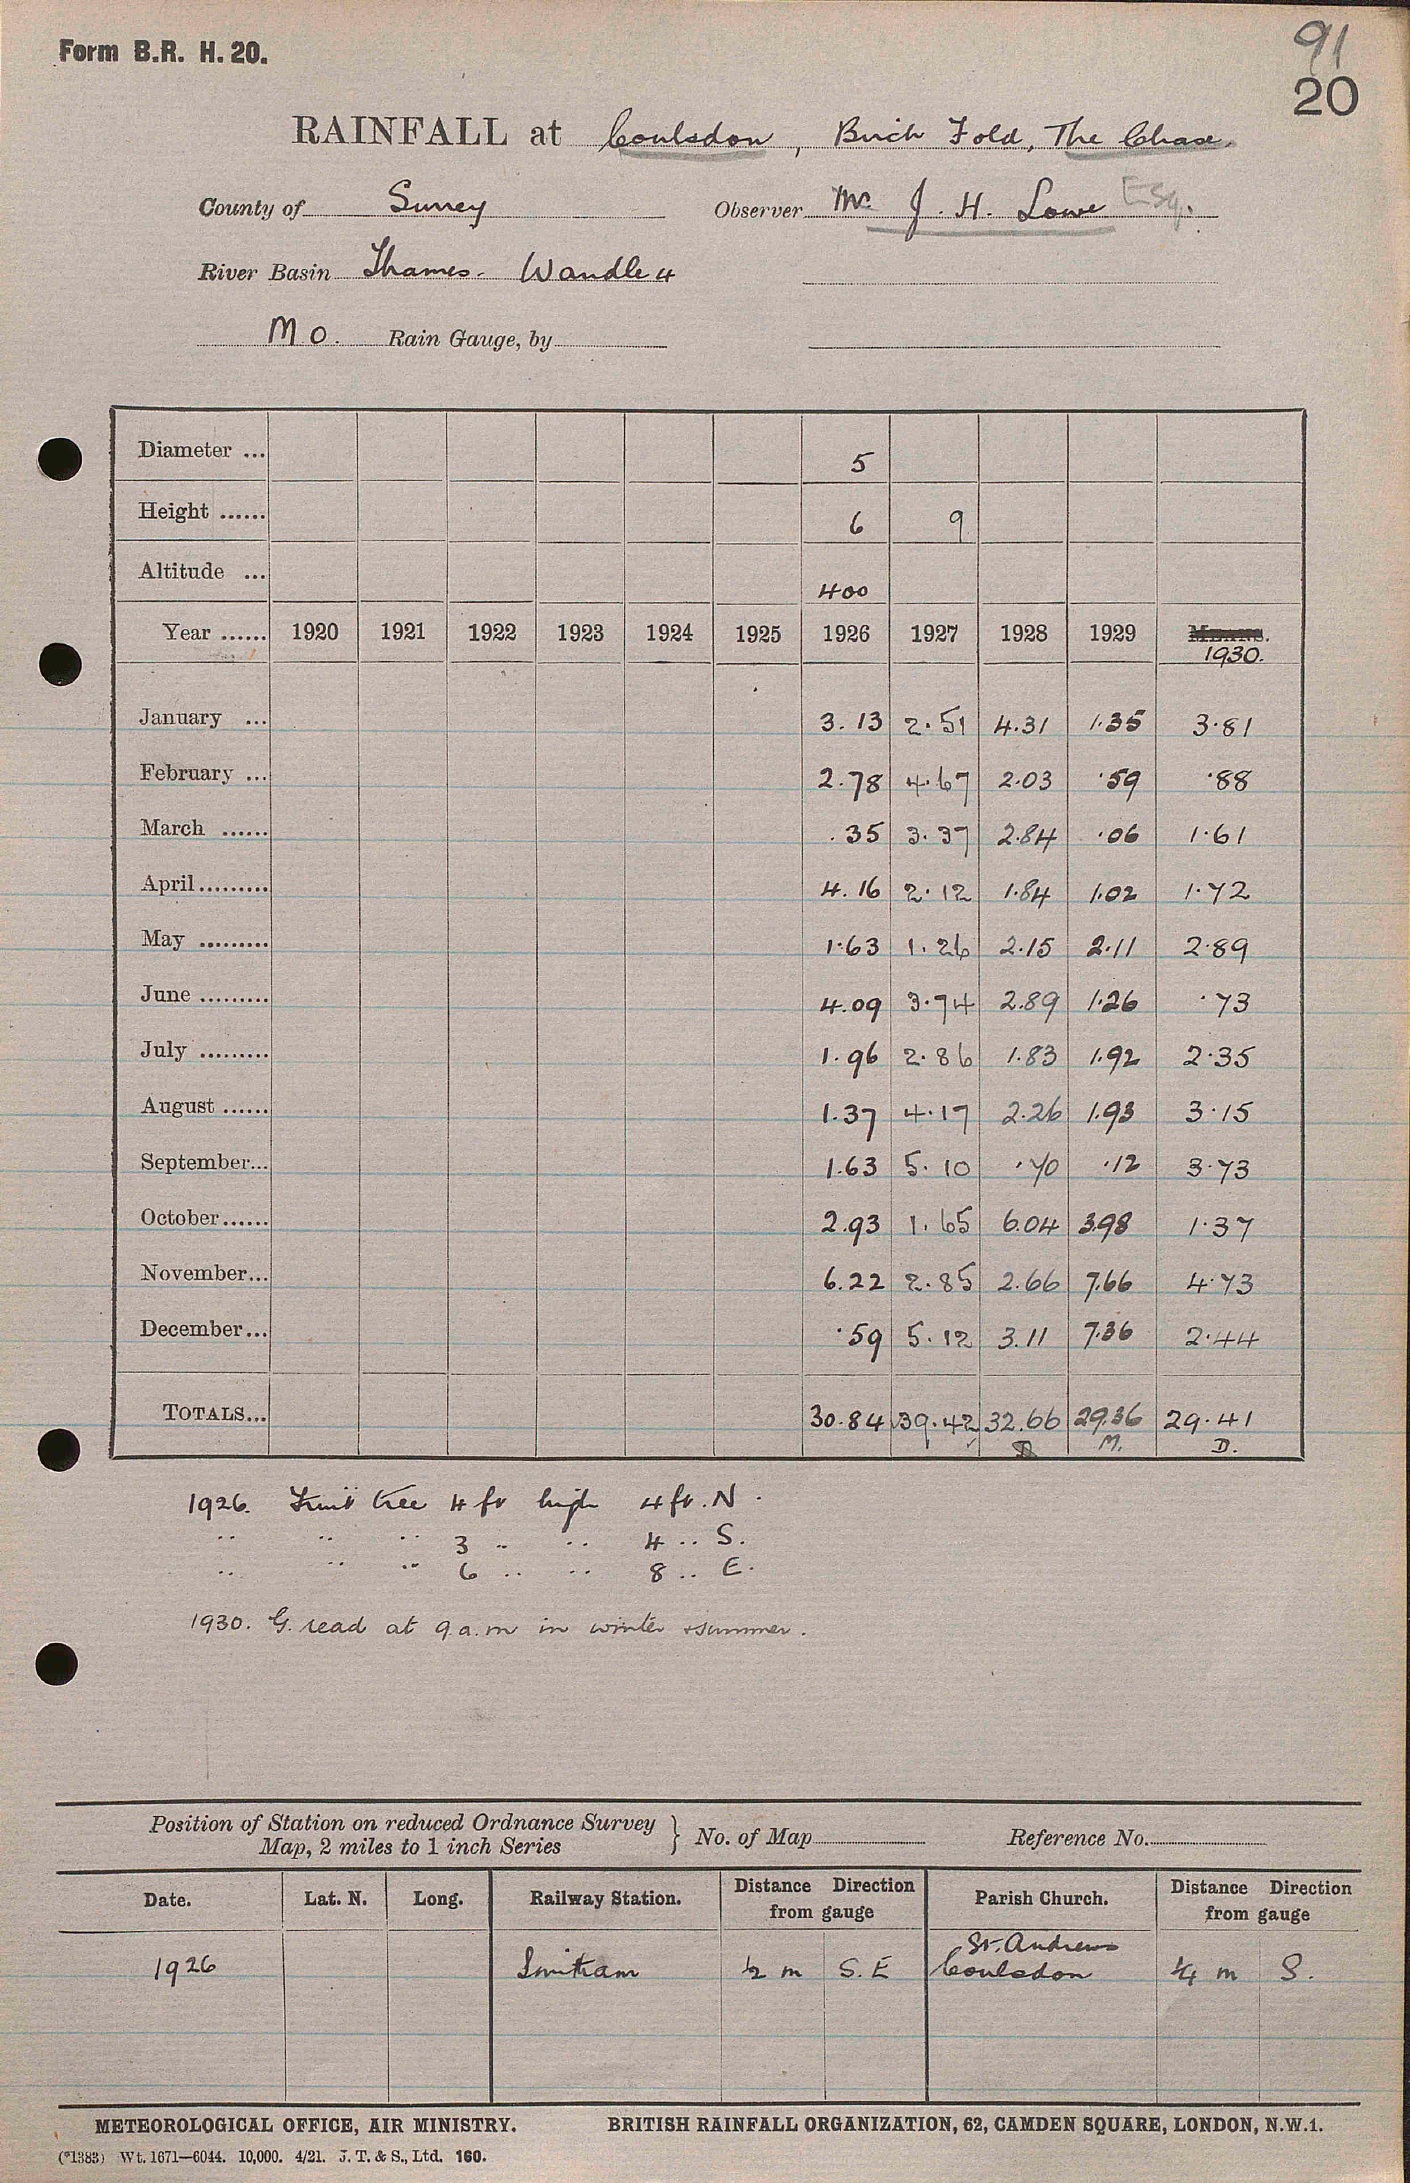 Form B.R. H. 20.
91
20
RAINFALL at Coulsdon, Birch Fold, The Chase.
County of Surrey Observer Mr. J. H. Lowe Esq.
River Basin Thames - Wandle 4
M O. Rain Gauge, by
Diameter ... 5
Height ...... 6 9
Altitude ... 400
Year ...... 1920 1921 1922 1923 1924 1925 1926 1927 1928 1929 MEANS.
1930.
January ... 3.13 2.51 4.31 1.35 3.81
February ... 2.78 4.67 2.03 .59 .88
March ...... .35 3.37 2.84 .06 1.61
April ......... 4.16 2.12 1.84 1.02 1.72
May ......... 1.63 1.26 2.15 2.11 2.89
June ......... 4.09 3.74 2.89 1.26 .73
July ......... 1.96 2.86 1.83 1.92 2.35
August ...... 1.37 4.17 2.26 1.93 3.15
September... 1.63 5.10 .70 .12 3.73
October...... 2.93 1.65 6.04 3.98 1.37
November... 6.22 2.85 2.66 7.66 4.73
December... .59 5.12 3.11 7.36 2.44
TOTALS... 30.84 39.42 32.66 29.36 29.41
M. D.
1926. Fruit tree 4 ft high 4 ft. N.
.. .. .. 3 .. .. 4 .. S.
.. .. .. 6 .. .. 8 .. E.
1930. G. read at 9 a.m in winter & summer.
Position of Station on reduced Ordnance Survey
Map, 2 miles to 1 inch Series } No. of Map Reference No.
Date. Lat. N. Long. Railway Station. Distance Direction from gauge Parish Church. Distance Direction from gauge
St. Andrews
1926 Smitham ½ m S.E Coulsdon ¼ m S.
METEOROLOGICAL OFFICE, AIR MINISTRY. BRITISH RAINFALL ORGANIZATION, 62, CAMDEN SQUARE, LONDON, N.W.1.
(*1383) Wt. 1671—6044. 10,000. 4/21. J. T. & S., Ltd. 160.